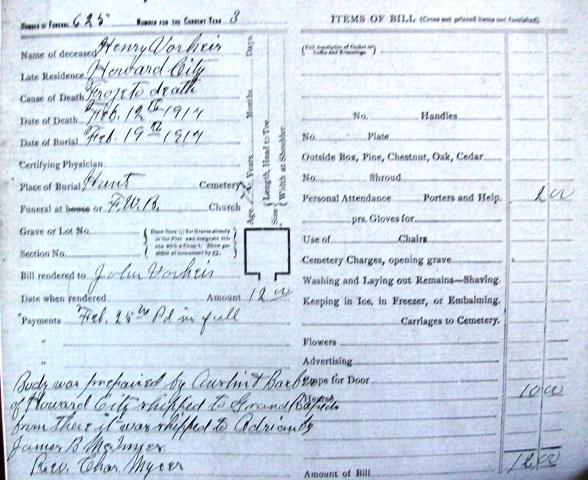 NUMBER OF FUNERAL 625 NUMBER FOR THE CURRENT YEAR 3
Name of deceased Henry Vorheis
Late Residence Howard City
Cause of Death Froze to death
Date of Death Feb. 12th 1917
Date of Burial Feb. 19th 1917
Certifying Physician
Place of Burial Hunt Cemetery
Funeral at house or F.W.B. Church
Grave or Lot No.
Section No.
Bill rendered to John Vorheis
Date when rendered Amount 12.00
Payments Feb. 25th Pd in full
"
"
Body was prepaired by Austin & Barber
of Howard City shipped to Grand Rapids
from there it was shipped to Adrian by
James B
Rev. Chas. Myers
Age Years. Months Days.
Size Length, Head to Toe
Width at Shoulder
ITEMS OF BILL (Cross out printed items not furnished)
(Full description of Casket or Coffin and Trimmings.)
No. Handles
No. Plate
Outside Box, Pine, Chestnut, Oak, Cedar
No. Shroud
Personal Attendance Porters and Help. 2 00
prs. Gloves for
Use of Chairs
Cemetery Charges, opening grave
Washing and Laying out Remains—Shaving
Keeping in Ice, in Freezer, or Embalming.
Carriages to Cemetery.
Flowers
Advertising
Crape for Door
10 00
Amount of Bill 12.00